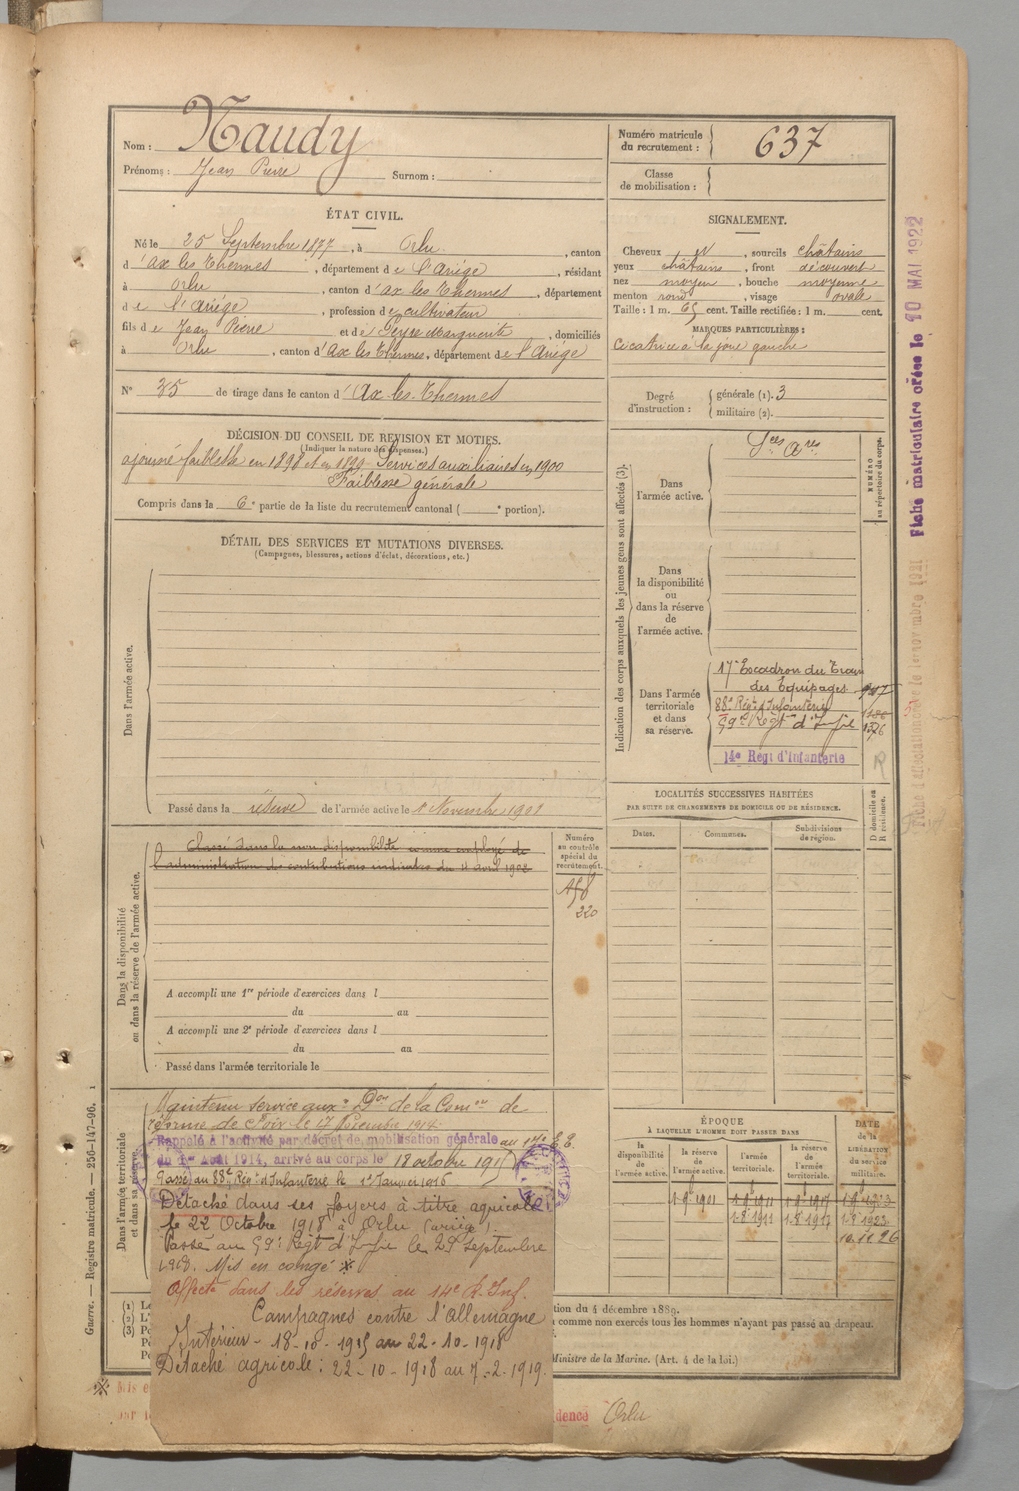 Nom : Naudy
Prénoms : Jean Pierre Surnom :
Numéro matricule du recrutement : 637
Classe de mobilisation :
ÉTAT CIVIL.
Né le 25 Septembre 1877, à Orlu, canton
d'Ax les Thermes, département de l'Ariége, résidant
à Orlu, canton d'Ax les Thermes, département
de l'Ariége, profession de cultivateur
fils de Jean Pierre et de Peyre Marguerite, domiciliés
à Orlu, canton d'Ax les Thermes, département de l'Ariége
N° 35 de tirage dans le canton d'Ax les Thermes
SIGNALEMENT.
Cheveux et, sourcils châtains
yeux châtains, front découvert
nez moyen, bouche moyenne
menton rond, visage ovale
Taille : 1 m. 65 cent. Taille rectifiée : 1 m. cent.
MARQUES PARTICULIÈRES :
Cicatrice à la joue gauche
Degré d'instruction : générale (1). 3
militaire (2).
DÉCISION DU CONSEIL DE RÉVISION ET MOTIFS.
(Indiquer la nature des dispenses.)
ajourné faiblesse en 1898 et en 1899 - Services auxiliaires en 1900
Faiblesse générale
Compris dans la 6e partie de la liste du recrutement cantonal ( e portion).
DÉTAIL DES SERVICES ET MUTATIONS DIVERSES.
(Campagnes, blessures, actions d'éclat, décorations, etc.)
Dans l'armée active.
Passé dans la réserve de l'armée active le 1 Novembre 1901
Indication des corps auxquels les jeunes gens sont affectés (3).
NUMÉRO au répertoire du corps.
Dans l'armée active.
Sces Ares
Dans la disponibilité ou dans la réserve de l'armée active.
Dans l'armée territoriale et dans sa réserve.
17e Escadron du Train
des Equipages
88e Régt d'Infanterie
59e Regt d'Infie 1376
14e Régt d'Infanterie
R
LOCALITÉS SUCCESSIVES HABITÉES
PAR SUITE DE CHANGEMENTS DE DOMICILE OU DE RÉSIDENCE.
Dates. Communes. Subdivisions de région. D domicile ou R résidence.
Dans la disponibilité ou dans la réserve de l'armée active.
Classé dans la non disponibilité comme employé de
l'administration des contributions indirectes du 11 avril 1902
Numéro au contrôle spécial du recrutement.
220
A accompli une 1re période d'exercices dans l
du au
A accompli une 2e période d'exercices dans l
du au
Passé dans l'armée territoriale le
Dans l'armée territoriale et dans sa réserve.
Maintenu service auxre Don de la Comon de
réforme de Foix le 17 Décembre 1914.
Rappelé à l'activité par décret de mobilisation générale au
du 1er Août 1914, arrivé au corps le 18 octobre 1915
Passé au 88e Régt d'Infanterie le 1er Janvier 1916
Détaché dans ses foyers à titre agricole
le 22 Octobre 1918 à Orlu (ariège).
Passé au 59e Regt d'Infie le 29 Septembre
1918. Mis en congé ※
Affecté dans les réserves au 14e R. Inf.
Campagnes contre l'Allemagne
Intérieur - 18-10-1915 au 22-10-1918
Détaché agricole : 22-10-1918 au 7-2-1919.
ÉPOQUE
À LAQUELLE L'HOMME DOIT PASSER DANS
la disponibilité de l'armée active. la réserve de l'armée active. l'armée territoriale. la réserve de l'armée territoriale. DATE de la LIBÉRATION du service militaire.
1-9-1901 1-9-1911 1-9-1917
1-8-1911 1-8-1917 1-8-1923
10.11.26
tion du 4 décembre 1889.
comme non exercés tous les hommes n'ayant pas passé au drapeau.
Ministre de la Marine. (Art. 4 de la loi.)
(1) Le
(2) L'
(3) Po
※ Mis e
par l
dence Orlu
Guerre. — Registre matricule. — 256-147-96.
Fiche matriculaire créée le 10 MAI 1922